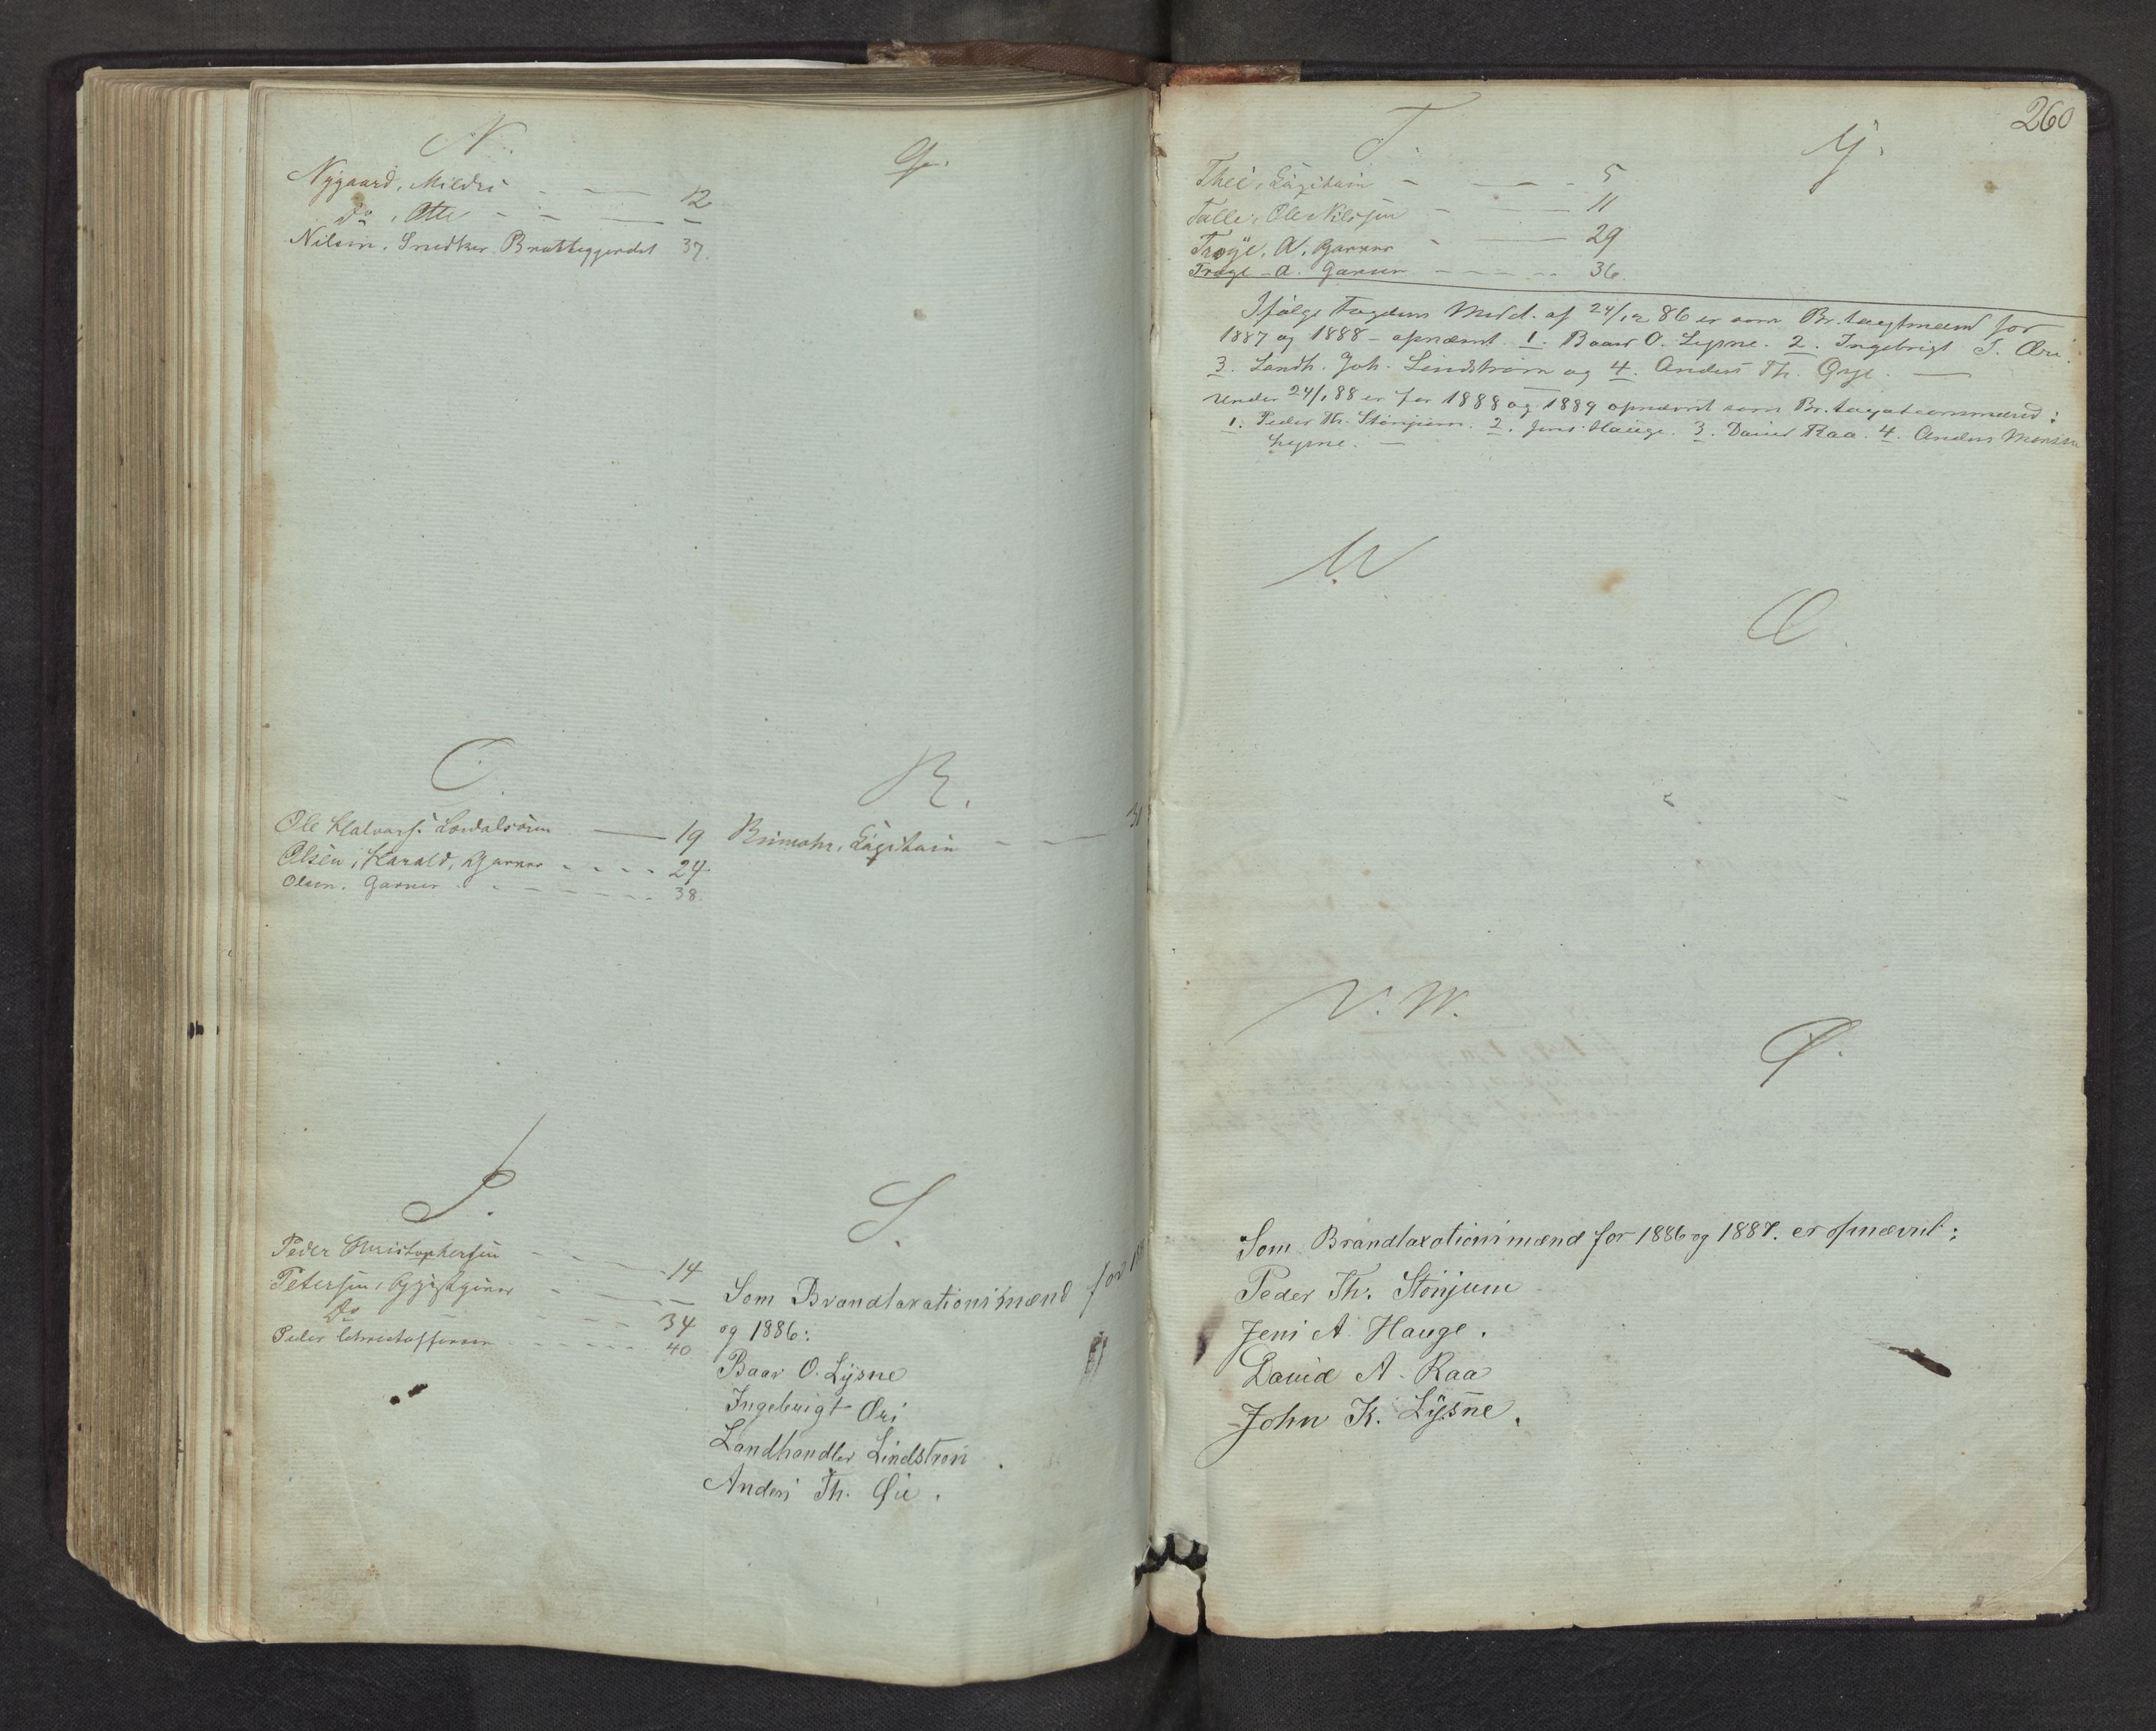 N.
Nygaard, Mildri - - - 12
Do , Otte - - - -
Nilsen. Snedker Bratteggjerdet 37.
Q.
O.
Ole Halvors. Lærdalsøren - 19
Olsen, Harald, Garver - - - - 24
Olsen. Garver - - - - - 38.
R.
Rumohr, Capitain - - - 31
P.
Peder Christophersen - - - - 14
Petersen, Gjæstgiver - - - -
Do - - - - 34
Peder Christoffersen - - - - - 40
S.
Som Brandtaxationsmænd for 18
og 1886:
Baar O. Lysne
Ingebrigt Øri
Landhandler Lindstrøm.
Anders Th. Øie.
260
T.
Thei, Capitain - - - - 5
Tulle, Ole Nilssen - - - 11
Trøye, A. Garver - - 29
Trøye - A. Garver - - - - - 36.
Y.
Ifølge Fogdens Medd. af 24/12 86 er som Br.taxtmænd for
1887 og 1888 - opnævnt 1. Baard O. Lysne. 2. Ingebrigt T. Øri.
3. Landh. Joh. Lindstrøm og 4. Anders Th. Øye. -
Under 24/1 88 er for 1888 og 1889 opnævnt som Br.taxationsmænd:
1. Peder Th. Stønjum. 2. Jens Hauge. 3. David Raa. 4. Anders Monsen
Lysne. -
U.
Æ.
V. W.
Ø.
Som Brandtaxationsmænd for 1886 og 1887. er opnævnt:
Peder Th. Stønjum
Jens A. Hauge.
David A. Raa
John K. Lysne.